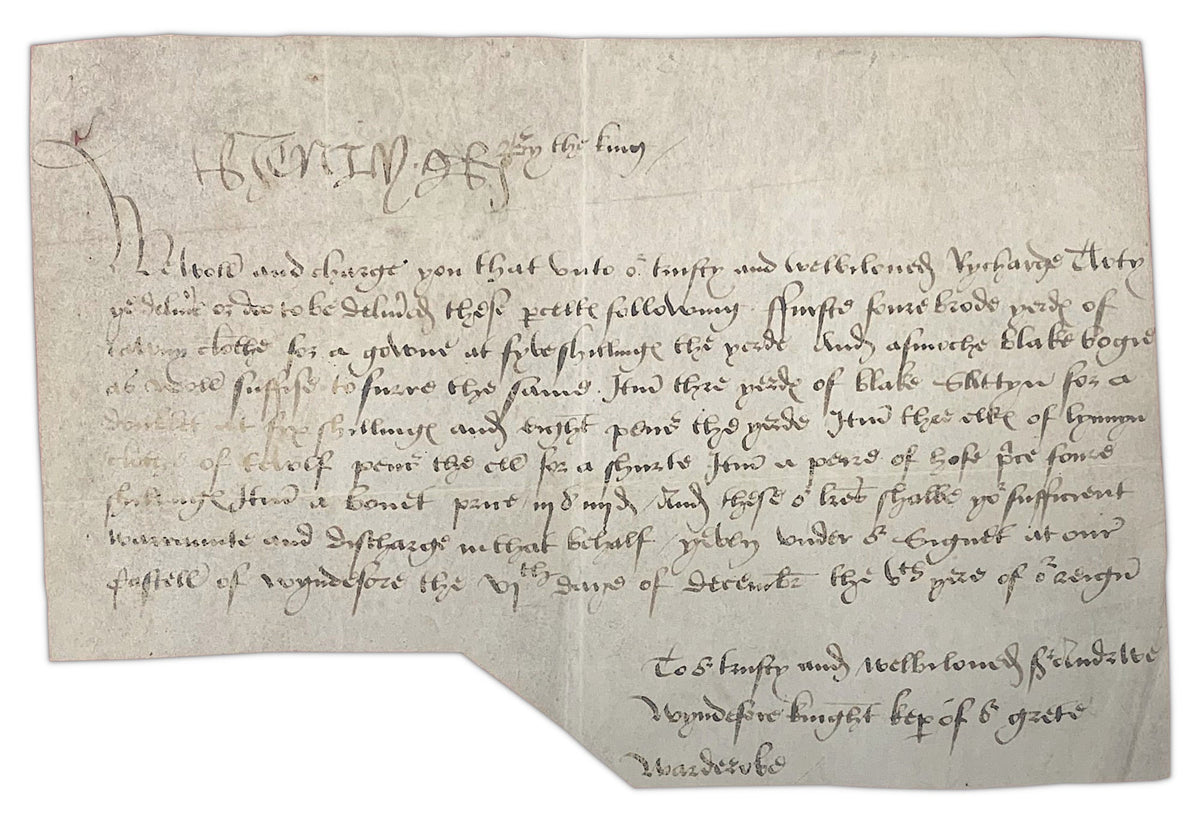 HENRY R By the king
We woll and charge you that unto or trusty and welbiloved Rycharde
ye delyver or doo to be delyvered these pcells following ffurste foure brode yerds of
tawny clothe for a gowne at fyve shillings the yerde And asmoche blake bogie
as woll suffise to furre the same Itm thre yerds of blake Sattyn for a
doublet at syx shillings and eight pens the yerde Itm thre elles of lynnyn
of twolf pens the ell for a shurte Itm a peire of hose price foure
shillings Itm a bonet price iij s iiij d And these or lres shalbe yor sufficient
warraunte and discharge in that behalf yeven under or Signet at our
Castell of Wyndesore the vjth daye of decembr the vth yere of or reign
To or trusty and welbiloved Sr Andrewe
Wyndesore knight kep of or grete
Warderobe